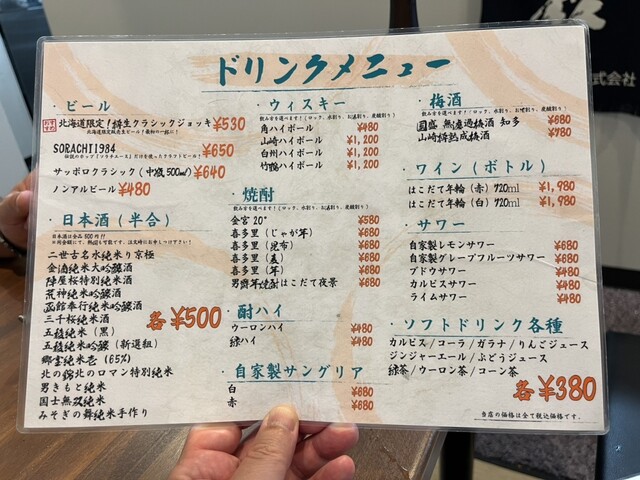 ドリンクメニュー
・ビール
北海道限定！樽生クラシックジョッキ ¥530
北海道限定販売生ビール！最初の一杯に！
SORACHI1984 ¥650
伝説のホップ「ソラチエース」だけを使ったクラフトビール！
サッポロクラシック（中瓶500ml） ¥640
ノンアルビール ¥480
・日本酒（半合）
日本酒は全品500円！！
二世古名水純米り京極
金滴純米大吟醸酒
陣屋桜特別純米酒
荒神純米大吟醸酒
函館奉行純米吟醸酒
三千桜純米酒
五稜純米（黒）
五稜純米吟醸（新選組）
郷宝純米壱（65%）
北の錦北のロマン特別純米
男きもと純米
国士無双純米
みそぎの舞純米手作り
各¥500
・ウィスキー
飲み方を選べます！（ロック、水割り、お湯割り、炭酸割り）
角ハイボール ¥480
山崎ハイボール ¥1,200
白州ハイボール ¥1,200
竹鶴ハイボール ¥1,200
・焼酎
飲み方を選べます！（ロック、水割り、お湯割り、炭酸割り）
金宮20° ¥580
喜多里（じゃが芋） ¥680
喜多里（昆布） ¥680
喜多里（麦） ¥680
喜多里（芋） ¥680
男爵芋焼酎はこだて夜景 ¥680
・酎ハイ
ウーロンハイ ¥480
緑ハイ ¥480
・自家製サングリア
白 ¥680
赤 ¥680
・梅酒
飲み方を選べます！（ロック、水割り、お湯割り、炭酸割り）
國盛 無濾過梅酒 知多 ¥680
山崎樽熟成梅酒 ¥780
・ワイン（ボトル）
はこだて年輪（赤）720ml ¥1,980
はこだて年輪（白）720ml ¥1,980
・サワー
自家製レモンサワー ¥680
自家製グレープフルーツサワー ¥680
ブドウサワー ¥480
カルピスサワー ¥480
ライムサワー ¥480
・ソフトドリンク各種
カルピス/コーラ/ガラナ/りんごジュース
ジンジャーエール/ぶどうジュース
緑茶/ウーロン茶/コーン茶
各¥380
当店の価格は全て税込価格です。
株式会社